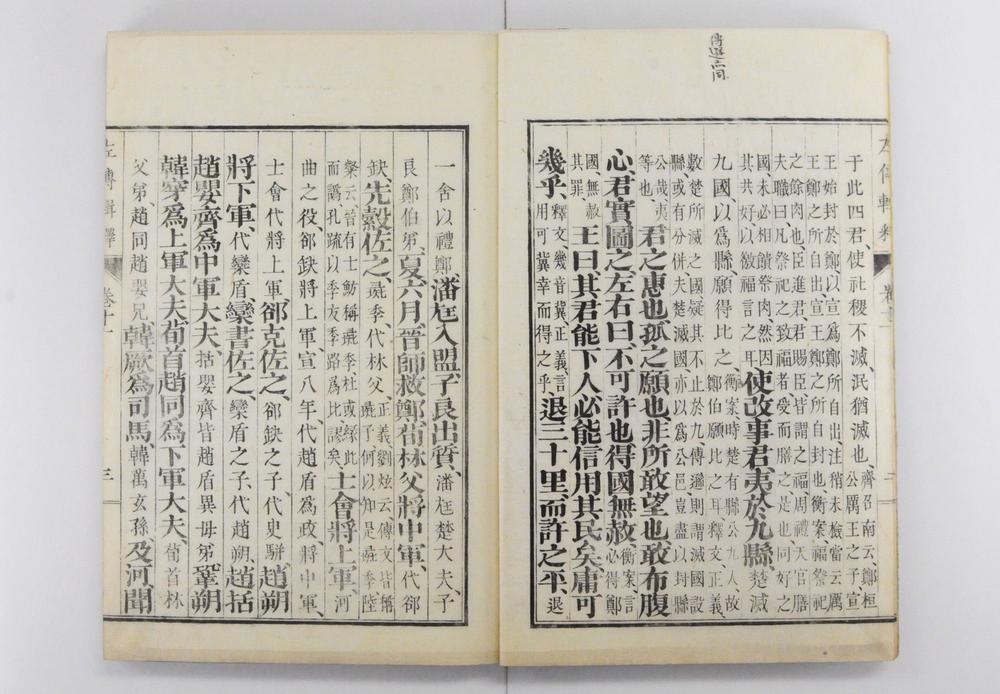 左傳輯釋 卷
于此四君、使社稷不滅、泯猶滅也、齊召南云、鄭桓公厲王之子、宣
王始封於鄭、以宣爲鄭所自出、注稍未檢、當云厲王鄭之所自出、宣王鄭之所自封也、衡案、福祭祀
之餘肉也、臣進君、君賜臣、皆謂之福、周禮天官膳夫職曰、凡祭祀之致福者、受而膳之、是也、同好之
國、未必相饋祭肉、然因其共好、以徼福言之耳、使改事君、夷於九縣、楚滅
九國、以爲縣、願得比之、衡案、時楚有縣公九人、故鄭伯願比之耳、釋文正義
數楚所滅之國、疑其不止於九、傳遜則謂滅國設縣、或有分併、夫楚滅國、亦以爲公邑、豈盡以封縣
公哉、夷等也、君之惠也、孤之願也、非所敢望也、敢布腹
心、君實圖之、左右曰、不可許也、得國無赦、衡案、言必得鄭
國、無赦其罪、王曰、其君能下人、必能信用其民矣、庸可
幾乎、釋文、幾音冀、正義、言用可冀幸而得之乎、退三十里、而許之平、退
一舍以禮鄭、潘尫入盟、子良出質、潘尫楚大夫、子
良鄭伯弟、夏六月、晉師救鄭、荀林父將中軍、代郤
缺、先縠佐之、彘季代林父、正義、劉炫云、傳文皆稱彘子、何以知是彘季、陸
粲云、晉有士魴、稱彘季、杜或緣此而譌、孔疏以季友季路爲比、謬矣、士會將上軍、河
曲之役、郤缺將上軍、宣八年代趙盾爲政、將中軍、
士會代將上軍、郤克佐之、郤缺之子、代臾駢、趙朔
將下軍、代欒盾、欒書佐之、欒盾之子、代趙朔、趙括
趙嬰齊爲中軍大夫、括嬰齊皆趙盾異母弟、鞏朔
韓穿爲上軍大夫、荀首趙同爲下軍大夫、荀首林
父弟、趙同趙嬰兄、韓厥爲司馬、韓萬玄孫、及河聞
左傳輯釋 卷十一 三